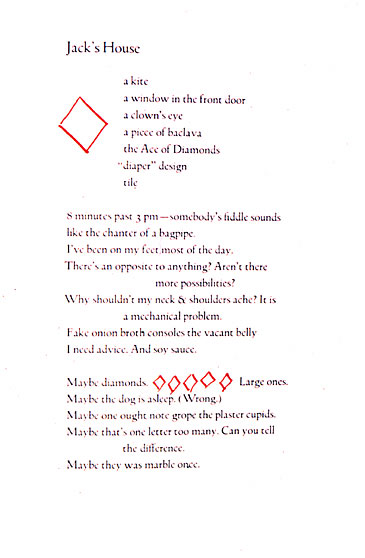 Jack's House
a kite
a window in the front door
a clown's eye
a piece of baclava
the Ace of Diamonds
"diaper" design
tile
8 minutes past 3 pm—somebody's fiddle sounds
like the chanter of a bagpipe.
I've been on my feet most of the day.
There's an opposite to anything? Aren't there
more possibilities?
Why shouldn't my neck & shoulders ache? It is
a mechanical problem.
Fake onion broth consoles the vacant belly
I need advice. And soy sauce.
Maybe diamonds. Large ones.
Maybe the dog is asleep. (Wrong.)
Maybe one ought note grope the plaster cupids.
Maybe that's one letter too many. Can you tell
the difference.
Maybe they was marble once.